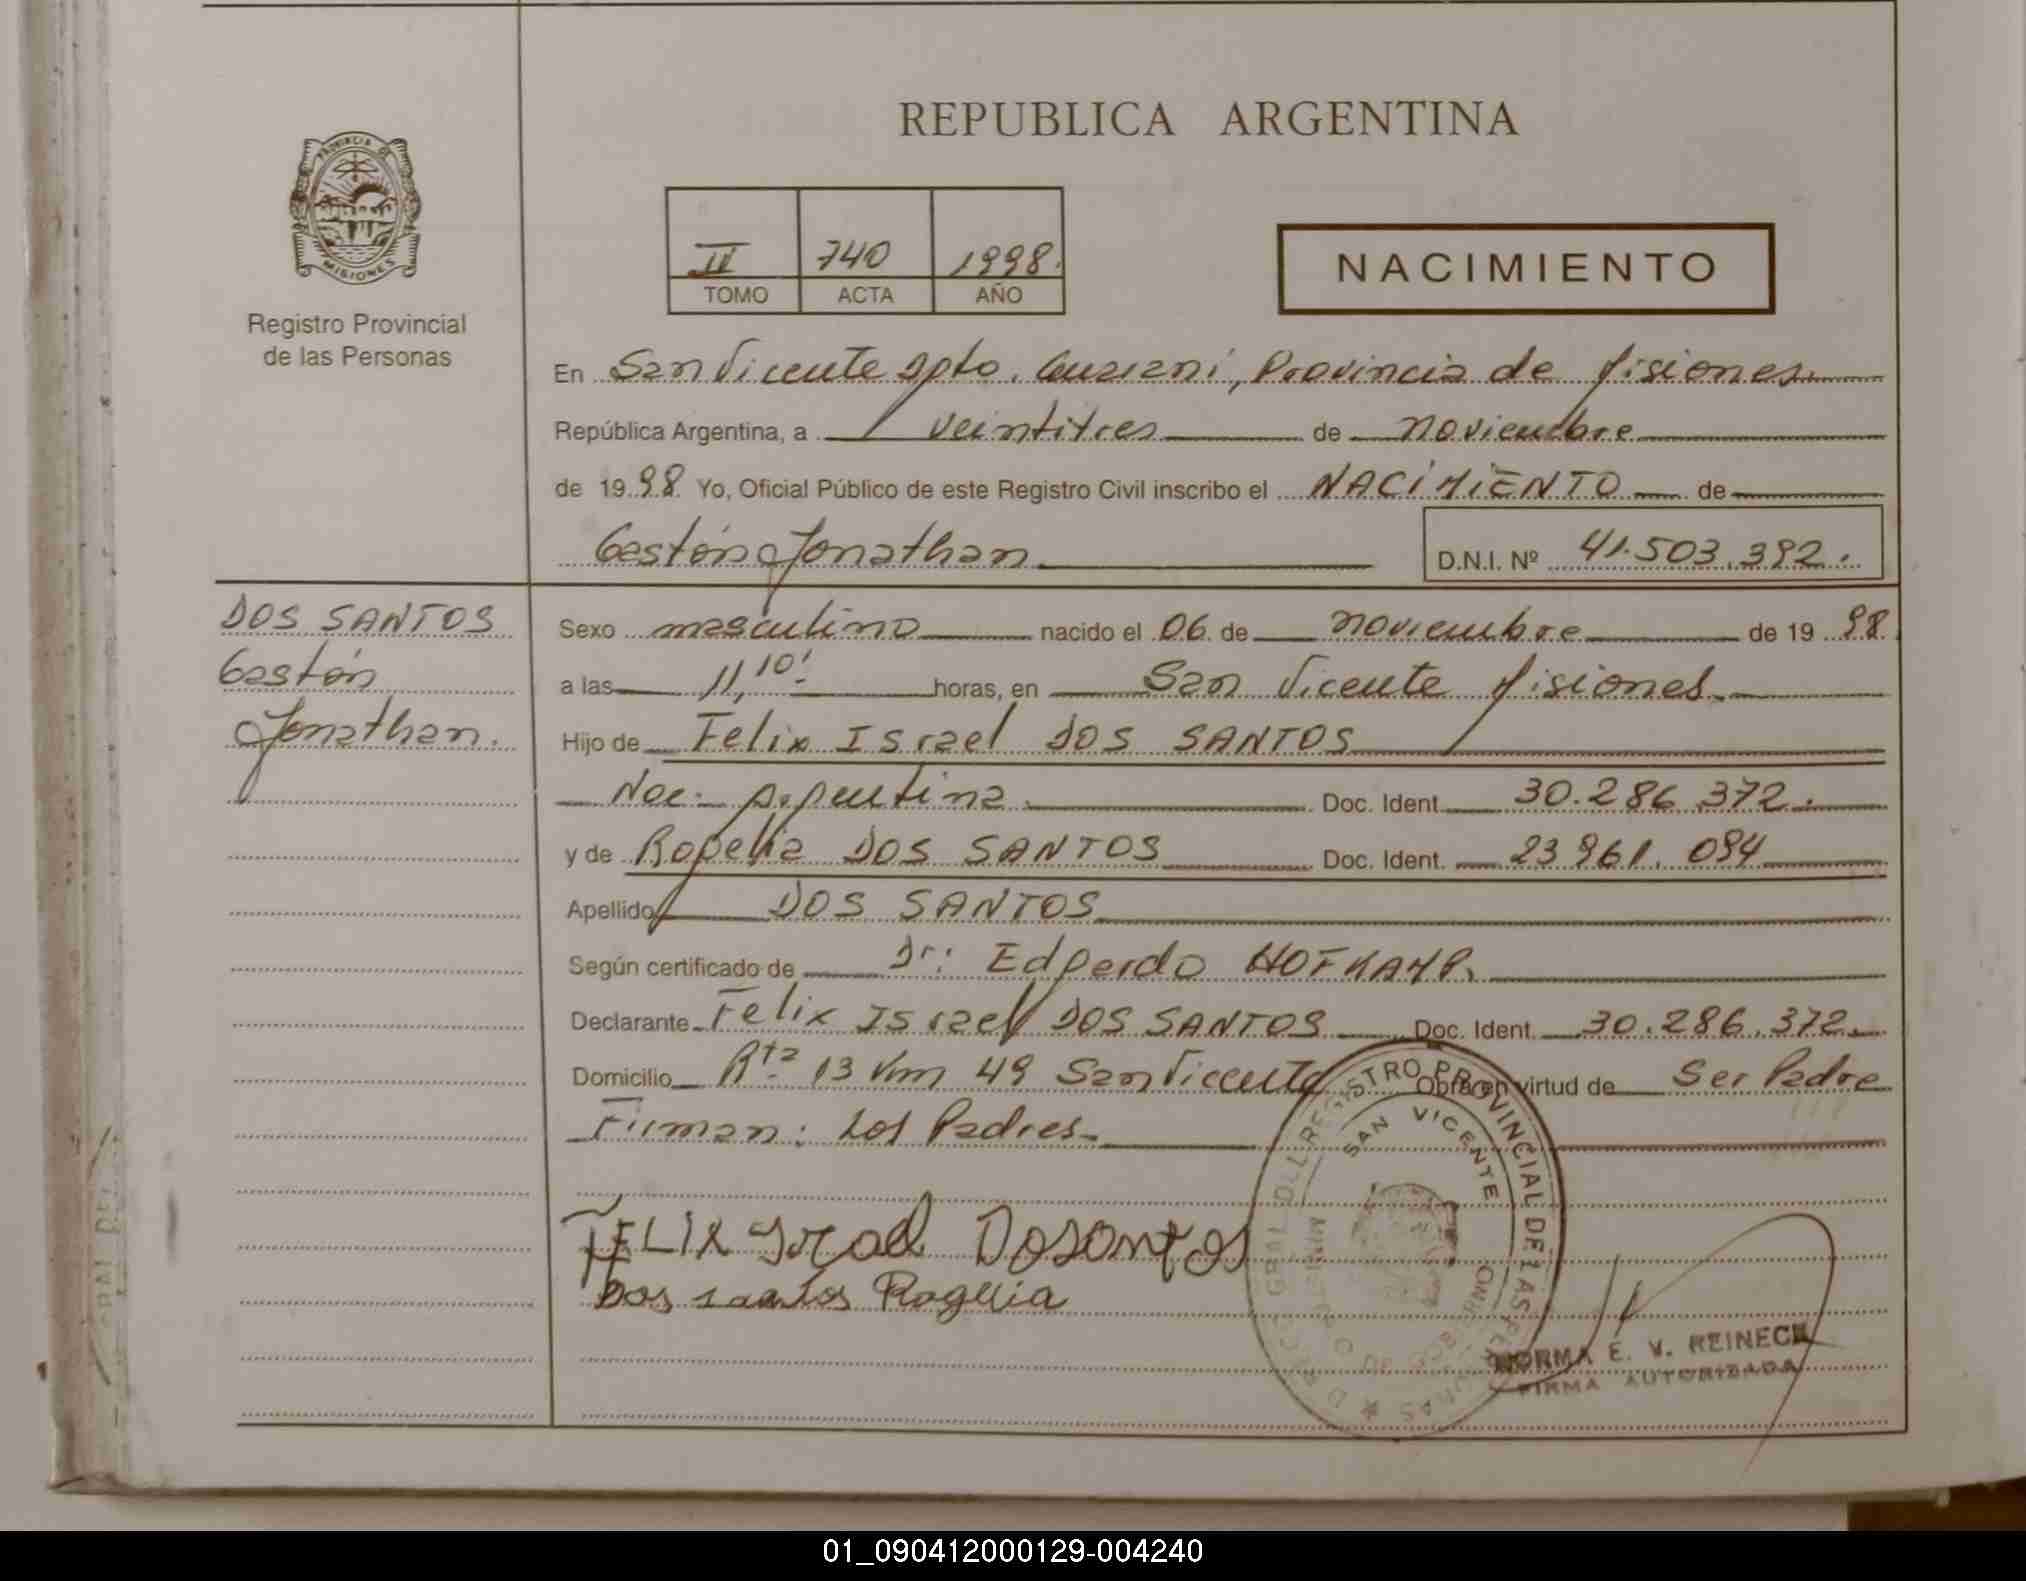 REPUBLICA ARGENTINA
PROVINCIA DE MISIONES
Registro Provincial
de las Personas
II 740 1998.
TOMO ACTA AÑO
NACIMIENTO
En San Vicente Dpto. Guaraní, Provincia de Misiones.
República Argentina, a veintitres de noviembre
de 1998. Yo, Oficial Público de este Registro Civil inscribo el NACIMIENTO de
Gastón Jonathan D.N.I. Nº 41.503.392.
DOS SANTOS
Gastón
Jonathan.
Sexo masculino nacido el 06 de noviembre de 1998.
a las 11,10' horas, en San Vicente Misiones.
Hijo de Felix Israel DOS SANTOS
Nac. Argentina. Doc. Ident. 30.286.372.
y de Rogelia DOS SANTOS Doc. Ident. 23.961.094
Apellido DOS SANTOS
Según certificado de Dr: Edgardo HOFKAMP.
Declarante Felix Israel DOS SANTOS Doc. Ident. 30.286.372.
Domicilio Rta 13 Km 49 San Vicente Obra en virtud de Ser Padre
Firman: Los Padres.
FELIX Israel Dosantos
Dos santos Rogelia
REGISTRO PROVINCIAL DE LAS PERSONAS
SAN VICENTE
MINISTERIO DE GOBIERNO
NORMA E. V. REINECK
FIRMA AUTORIZADA
01_090412000129-004240